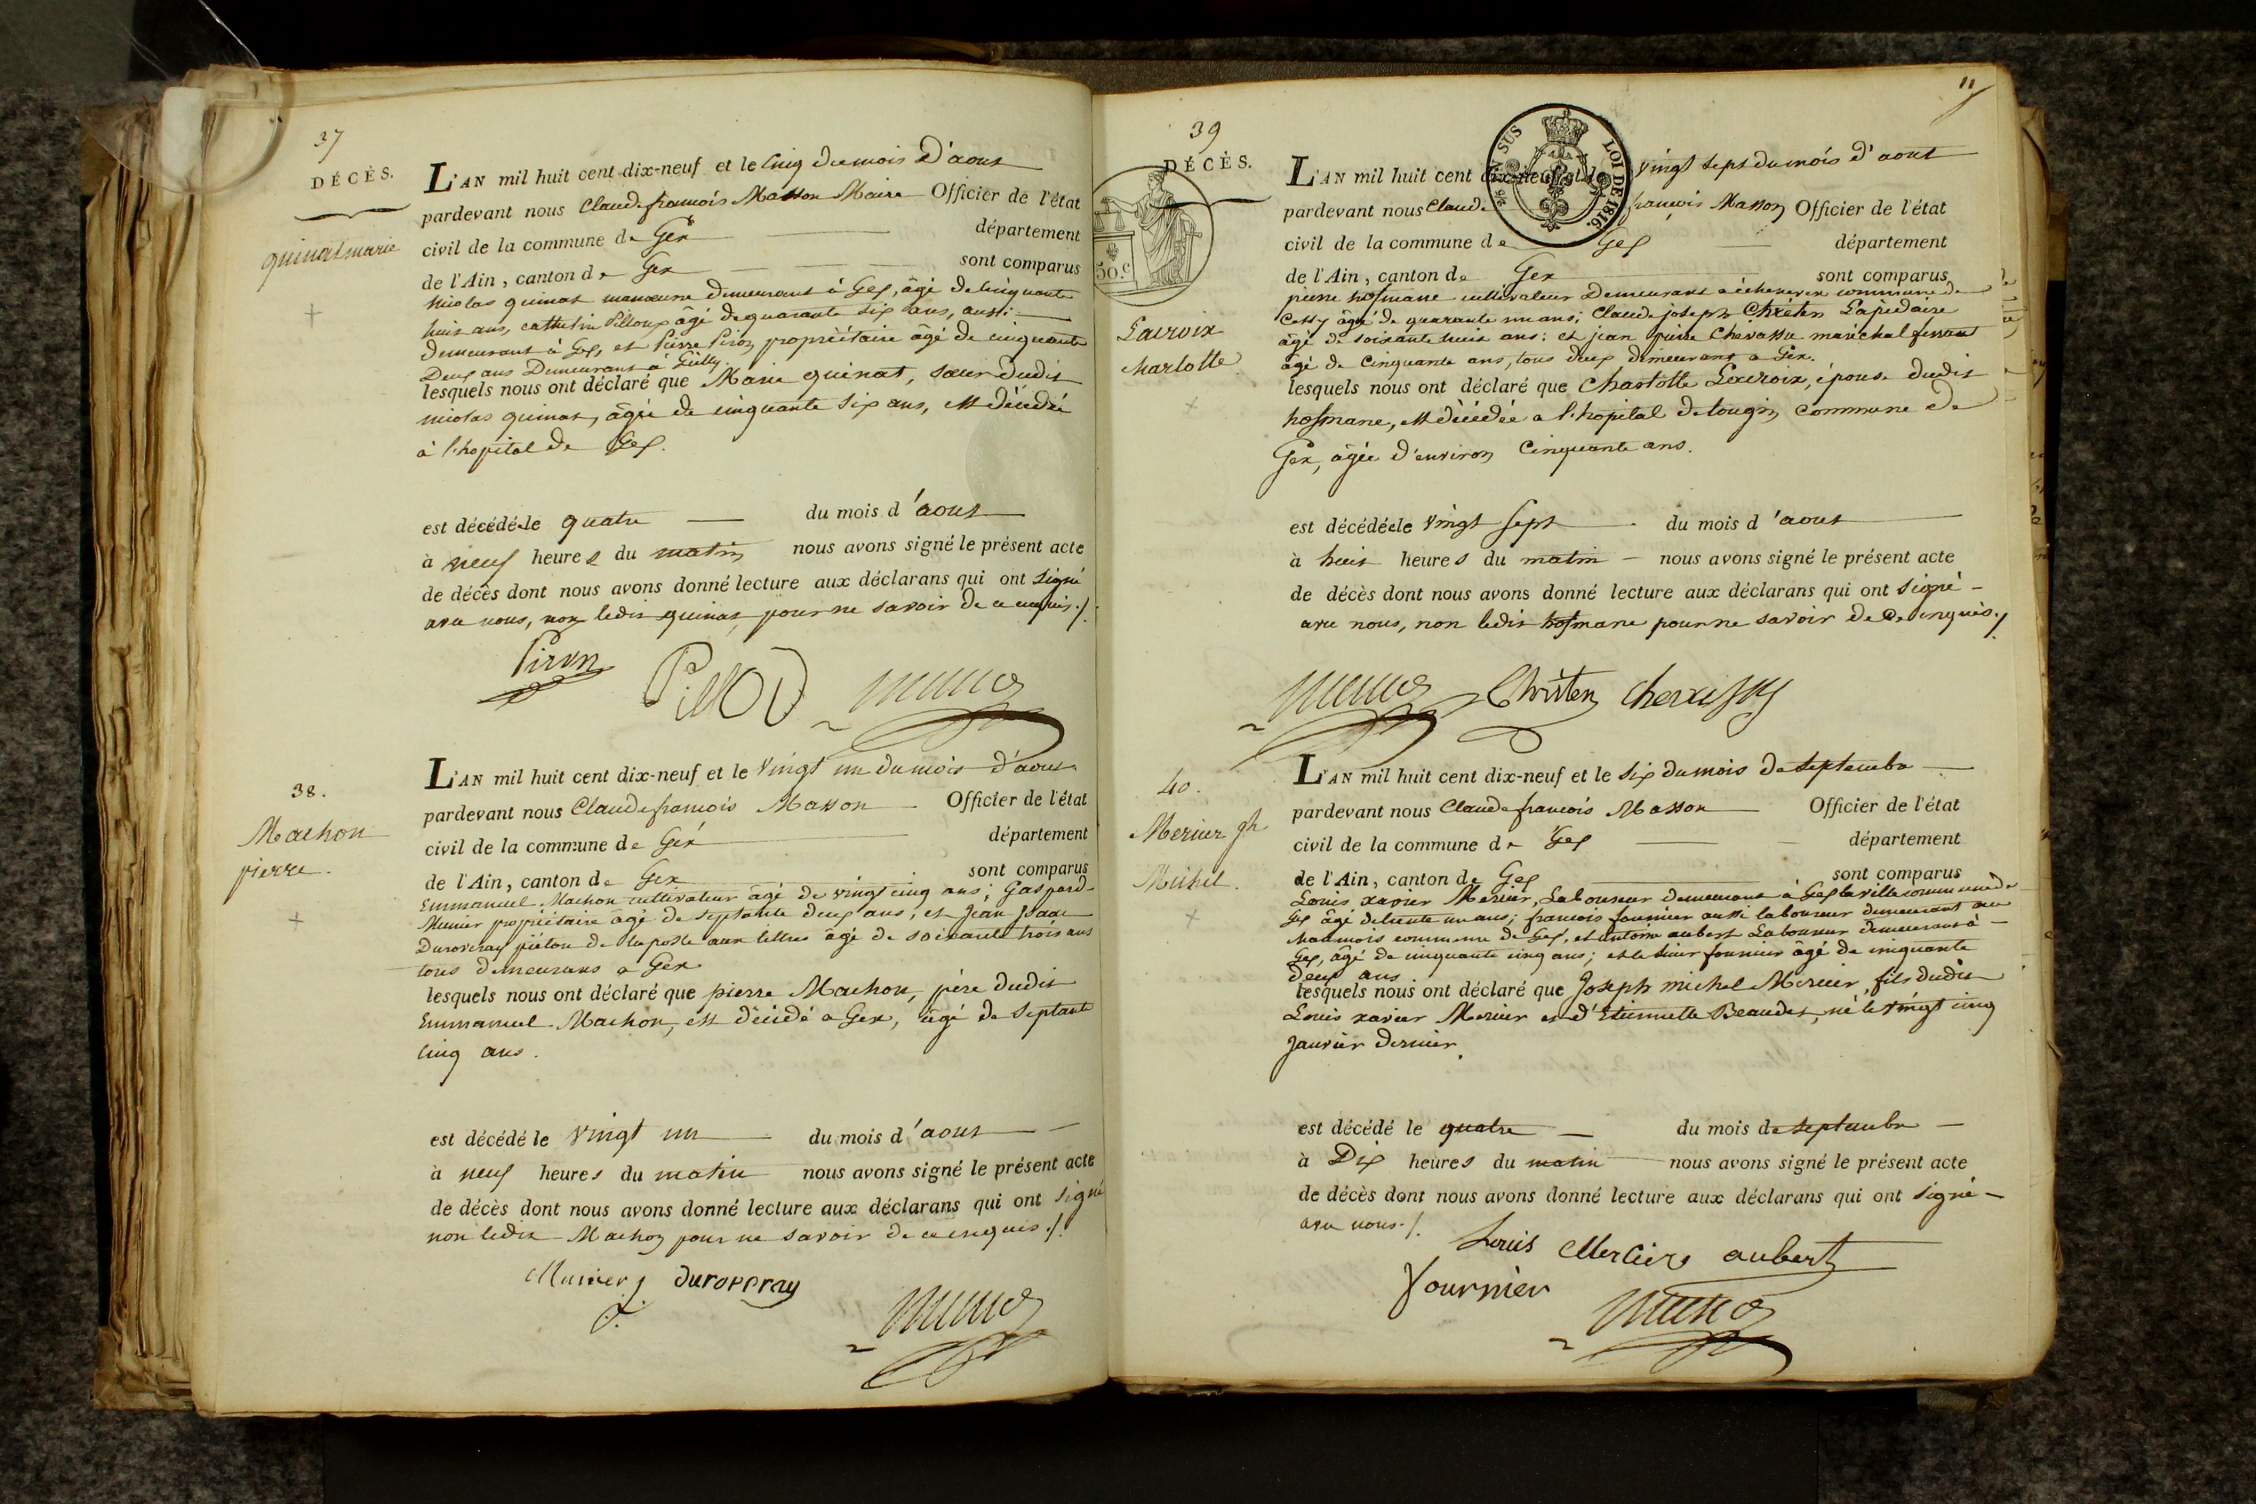 37
DÉCÈS.
quinat marie
L'AN mil huit cent dix-neuf et le cinq du mois d'aout
pardevant nous Claude françois Masson Maire Officier de l'état
civil de la commune de Gex département
de l'Ain, canton de Gex sont comparus
nicolas quinat manoeuvre demeurant à Gex, âgé de cinquante
huit ans, cathelin Pilloux âgé de quarante six ans, aussi
demeurant à Gex, et Pierre Piron propriétaire âgé de cinquante
Deux ans Demeurant à Gilly.
lesquels nous ont déclaré que Marie quinat, sœur dudit
nicolas quinat, âgée de cinquante six ans, est décédée
à l'hopital de Gex.
est décédée le quatre du mois d'aout
à neuf heures du matin nous avons signé le présent acte
de décès dont nous avons donné lecture aux déclarans qui ont signé
avec nous, non ledit quinat, pour ne savoir de ce enquis ./.
Piron
38.
Machon
pierre.
L'AN mil huit cent dix-neuf et le vingt un du mois d'aout
pardevant nous Claude françois Masson Officier de l'état
civil de la commune de Gex département
de l'Ain, canton de Gex sont comparus
Emmanuel Machon cultivateur âgé de vingt cinq ans; Gaspard
Munier propriétaire âgé de septante deux ans, et Jean Isaac
Duroveray piéton de la poste aux lettres âgé de soixante trois ans
tous demeurans a Gex
lesquels nous ont déclaré que pierre Machon, père dudit
Emmanuel Machon, est décédé a Gex, âgé de septante
cinq ans.
est décédé le vingt un du mois d'aout
à neuf heures du matin nous avons signé le présent acte
de décès dont nous avons donné lecture aux déclarans qui ont signé
non ledit Machon pour ne savoir de ce enquis ./.
Munier duroveray
11
39
DÉCÈS.
SUS
LOI DE 1816.
50.c
Lacroix
charlotte
L'AN mil huit cent dix-neuf et le vingt sept du mois d'aout
pardevant nous Claude françois Masson Officier de l'état
civil de la commune de Gex département
de l'Ain, canton de Gex sont comparus
pierre hofmane cultivateur Demeurant a échenevex commune de
Cessy âgé de quarante un ans; Claude joseph Chréten Lapidaire
âgé de soixante huit ans: et jean pierre Chevassu maréchal ferrant
âgé de Cinquante ans, tous deux demeurant a Gex.
lesquels nous ont déclaré que charlotte Lacroix, épouse dudit
hofmane, est décédée a l'hopital de tougin commune de
Gex, âgée d'environ cinquante ans.
est décédée le vingt sept du mois d'aout
à huit heures du matin nous avons signé le présent acte
de décès dont nous avons donné lecture aux déclarans qui ont signé
avec nous, non ledit hofmane pour ne savoir de ce enquis ./.
Christen chevassus
40.
Mercier jh
Michel.
L'AN mil huit cent dix-neuf et le six du mois de septembre
pardevant nous Claude françois Masson Officier de l'état
civil de la commune de Gex département
de l'Ain, canton de Gex sont comparus
Louis xavier Mercier, Laboureur demeurant à Gex la ville commune de
Gex âgé de trente un ans; francois fournier aussi laboureur demeurant au
commune de Gex, et antoine aubert Laboureur demeurant à
Gex, âgé de cinquante cinq ans; et le sieur fournier âgé de cinquante
deux ans
lesquels nous ont déclaré que Joseph michel Mercier, fils dudit
Louis xavier Mercier et d'Etiennette Beaudet, né le vingt cinq
janvier dernier.
est décédé le quatre du mois de septembre
à Dix heures du matin nous avons signé le présent acte
de décès dont nous avons donné lecture aux déclarans qui ont signé
avec nous ./.
Louis Mercier aubert
fournier